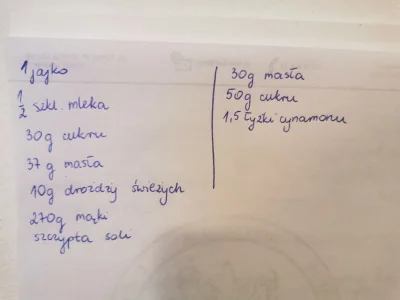 1 jajko
1/2 szkl. mleka
30g cukru
37g masła
10g drożdży świeżych
270g mąki
szczypta soli
30g masła
50g cukru
1,5 łyżki cynamonu